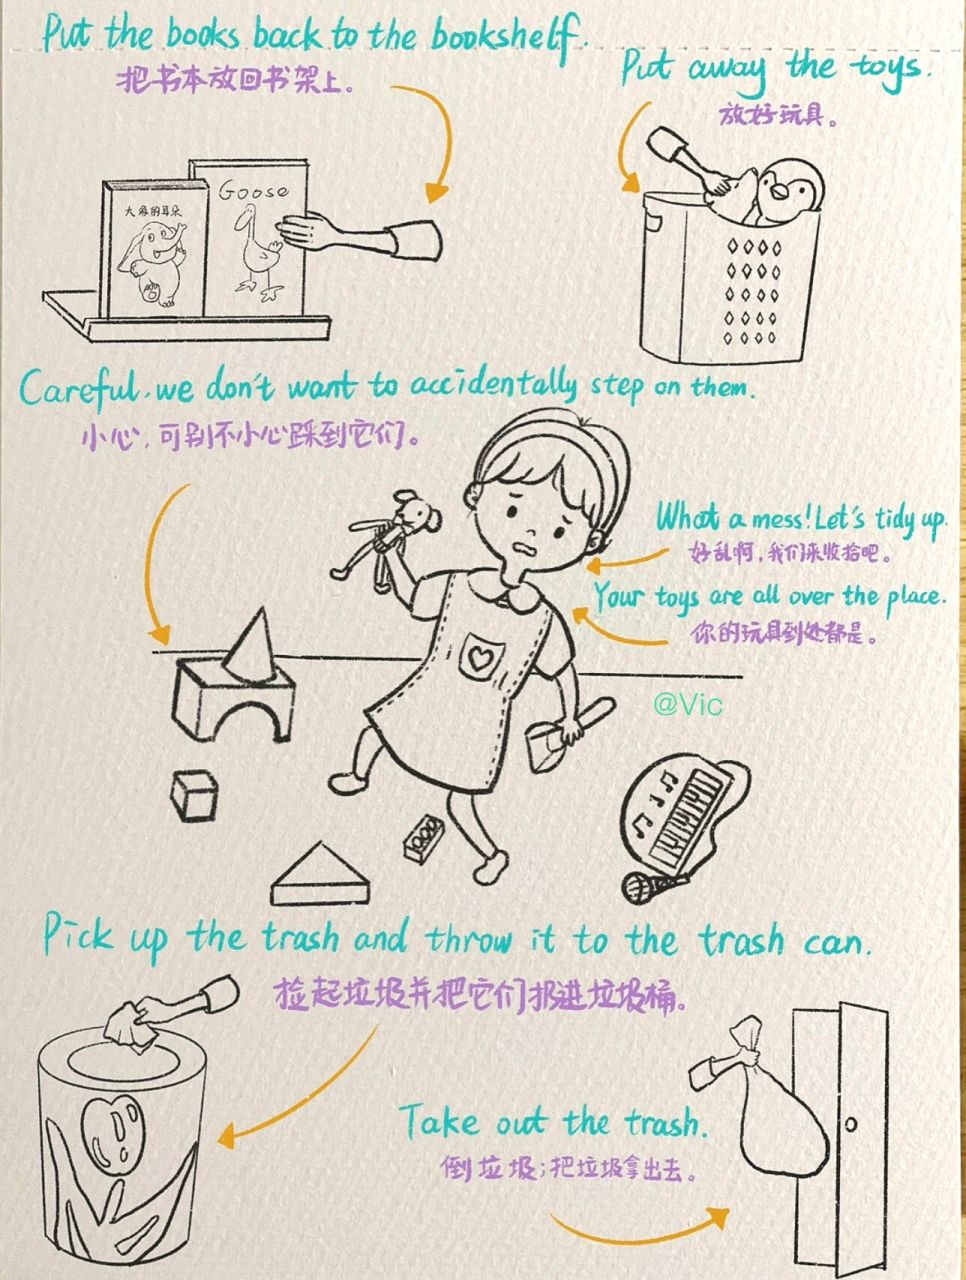 Put the books back to the bookshelf.
把书本放回书架上。
Put away the toys.
放好玩具。
Goose
大象的耳朵
Careful, we don't want to accidentally step on them.
小心,可别不小心踩到它们。
What a mess! Let's tidy up.
好乱啊,我们来收拾吧。
Your toys are all over the place.
你的玩具到处都是。
@Vic
Pick up the trash and throw it to the trash can.
捡起垃圾并把它们扔进垃圾桶。
Take out the trash.
倒垃圾;把垃圾拿出去。